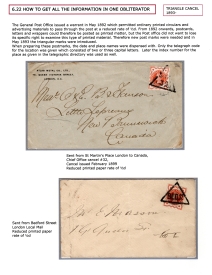 6.22 HOW TO GET ALL THE INFORMATION IN ONE OBLITERATOR
TRIANGLE CANCEL
1893-
The General Post Office issued a warrant in May 1892 which permitted ordinary printed circulars and
advertising materials to pass through the post at a reduced rate of ½d. From 1892 onwards, postcards,
letters and wrappers could therefore be posted as printed matter, but the Post office did not want to lose
its specific right to examine this type of printed material. Therefore new post marks were needed and in
May 1893 the triangular marks were introduced.
When preparing these postmarks, the date and place names were dispensed with. Only the telegraph code
for the location was given which consisted of two or three capital letters. Later the index number for the
place as given in the telegraphic directory was used as well.
Canada
Sent from St Martin's Place London to Canada,
Chief Office cancel 432,
Cancel issued February 1899
Reduced printed paper
rate of ½d
Sent from Bedford Street
London Local Mail
Reduced printed paper
rate of ½d